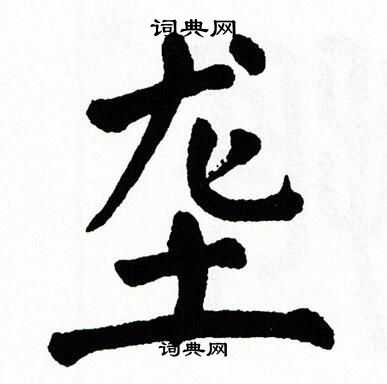 词典网
垄
词典网